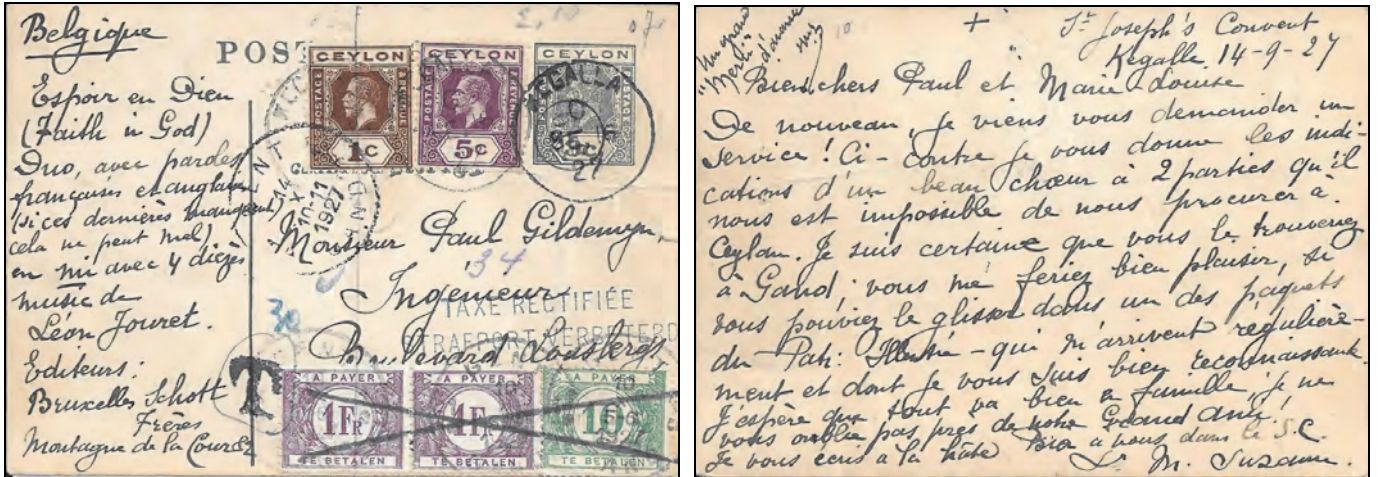 Belgique
POST
CEYLON
POSTAGE
1c
CEYLON
POSTAGE
REVENUE
5c
CEYLON
KEGALLA
27
Espoir en Dieu
(Faith in God)
Duo, avec paroles
françaises et anglaises
(si ces dernières manquent,
cela ne peut mal)
en mi avec 4 dièzes
music de
Léon Jouret.
Editeurs:
Bruxelles Schott
Frères
Montagne de la Cour
GENT
GAND
14
X
10-11
1927
Monsieur Paul Gildemyn,
34
Ingénieur
TAXE RECTIFIÉE
STRAFPORT VERBETERD
Boulevard Lousbergs
30
T
A PAYER
1FR
TE BETALEN
A PAYER
1FR
TE BETALEN
A PAYER
10
TE BETALEN
Un grand
"Merci"
d'avance
+
St Joseph's Convent
Kegalle 14-9-27
Bien chers Paul et Marie-Louise
De nouveau, je viens vous demander un
service! Ci-contre je vous donne les indi-
cations d'un beau chœur à 2 parties qu'il
nous est impossible de nous procurer à
Ceylan. Je suis certaine que vous le trouverez
à Gand; vous me feriez bien plaisir, si
vous pouviez le glisser dans un des paquets
du Patr: Illustré - qui m'arrivent régulière-
ment et dont je vous suis bien reconnaissante.
J'espère que tout va bien en famille; je ne
vous oublie pas près de notre Grand Ami!
Je vous écris à la hâte Bien à vous dans le S.C.
Sr M. Suzanne.